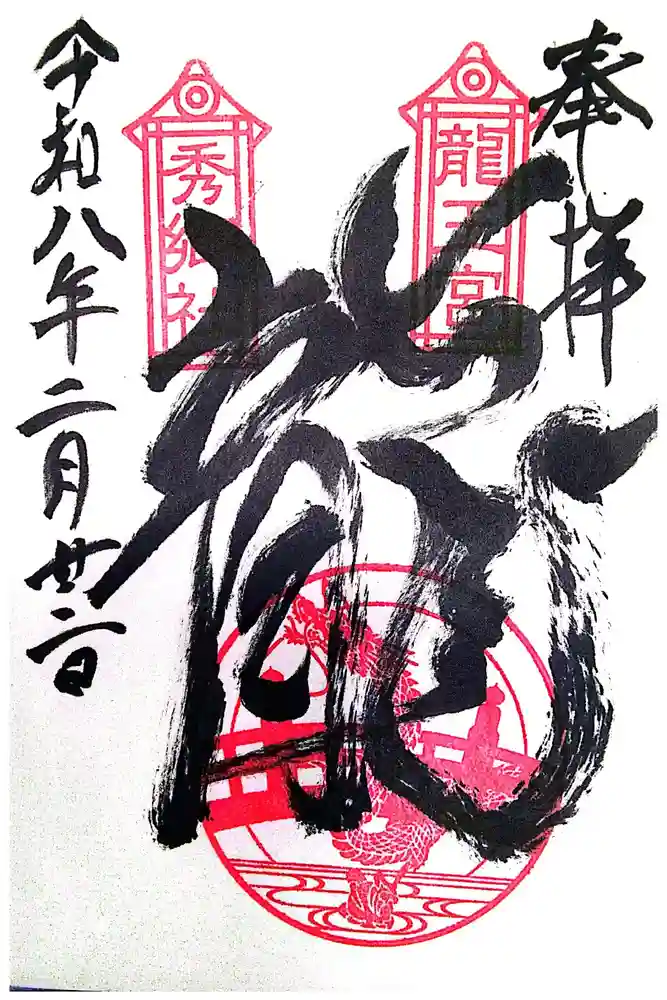 奉拝
龍王宮
秀郷社
龍
令和八年二月廿二日